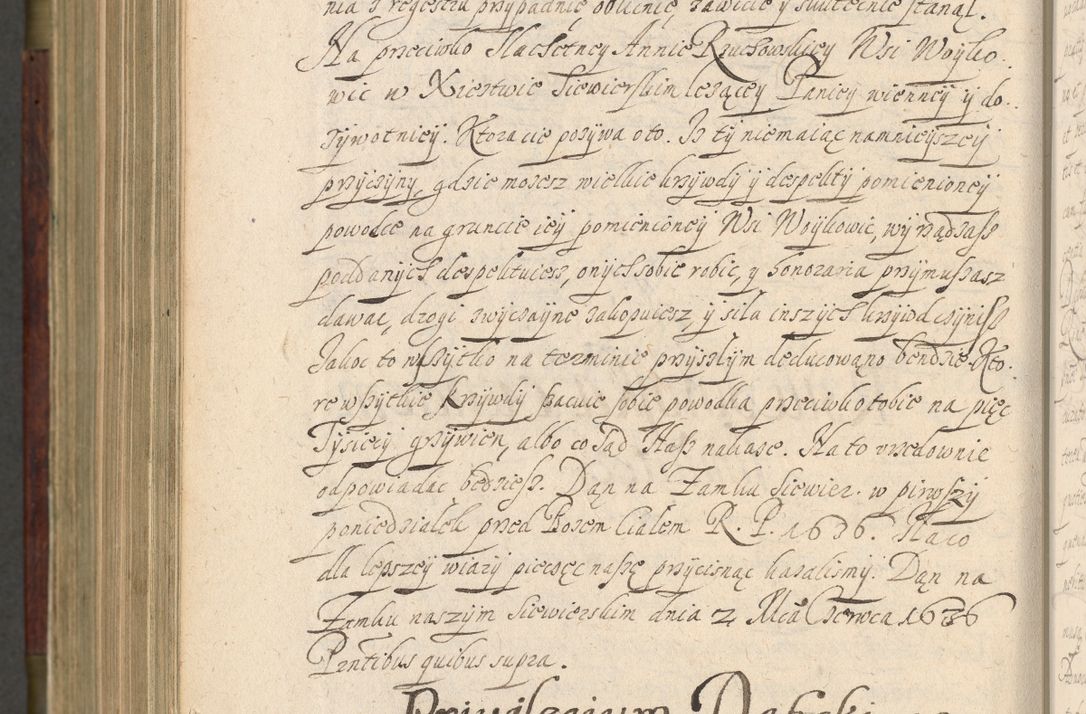 nia z regestru przypadnie oblienie, zawicie y skutecnie stanął.
Na przeciwko Slachetney Annie Rzuchowskiey Wsi Woyko
wic w Xiestwie Siewierskim lezącey Paniey wienney y do
zywotniey. Ktora cie pozywa o to. Iz ty niemaiąc namnieyszeey
przyczyny, gdzie mozesz wielkie krzywdy y despekty pomienioney
powodce na gruncie iey pomienioney Wsi Woykowic, wyrządzass
poddanych despektuiesz, onych sobie robic, y honoraria przymuszasz
dawac, drogi zwyczayne zakopuiesz y sila inszych krzywd czyniss
Iakoc to wszytko na terminie przyszlym deducowano bendzie. Kto
re wszytkie krzywdy szacuie sobie powodka przeciwko tobie na pięc
Tysięcy grzywien, albo co Sąd Nass nakaze. Na to vrzedownie
odpowiadac bedziess. Dąn na Zamku Siewier. w pirwszy
poniedzialek przed Bozem Cialem R. P. 1636. Na co
dla lepszey wiary pieczęc naszę przycisnąc kazalismy. Dąn na
Zamku naszym Siewierskim dnia 2 Mca Czerwca 1636
Prntibus quibus supra.
Priuilegium